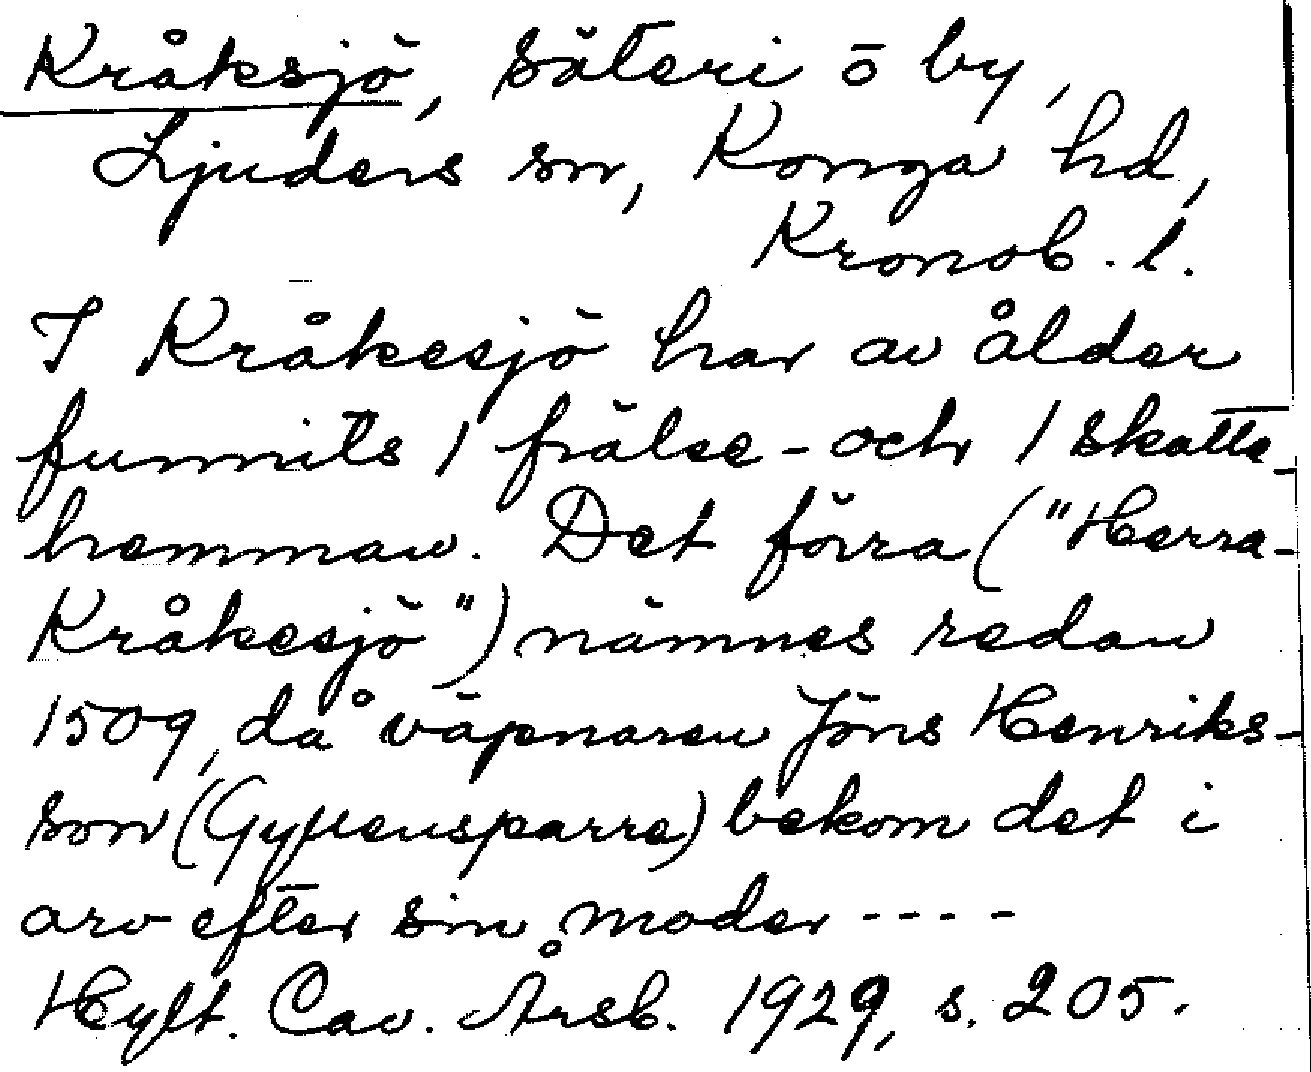 Kråksjö, säteri ō by,
Ljuders sn, Konga hd,
Kronob. l.
I Kråkesjö har av ålder
funnits 1 frälse- och 1 skatte-
hemman. Det förra ("Herra-
Kråkesjö") nämnes redan
1509, då väpnaren Jöns Henriks-
son (Gyllensparre) bekom det i
arv efter sin moder ----
Hylt. Cav. Årsb. 1929, s. 205.